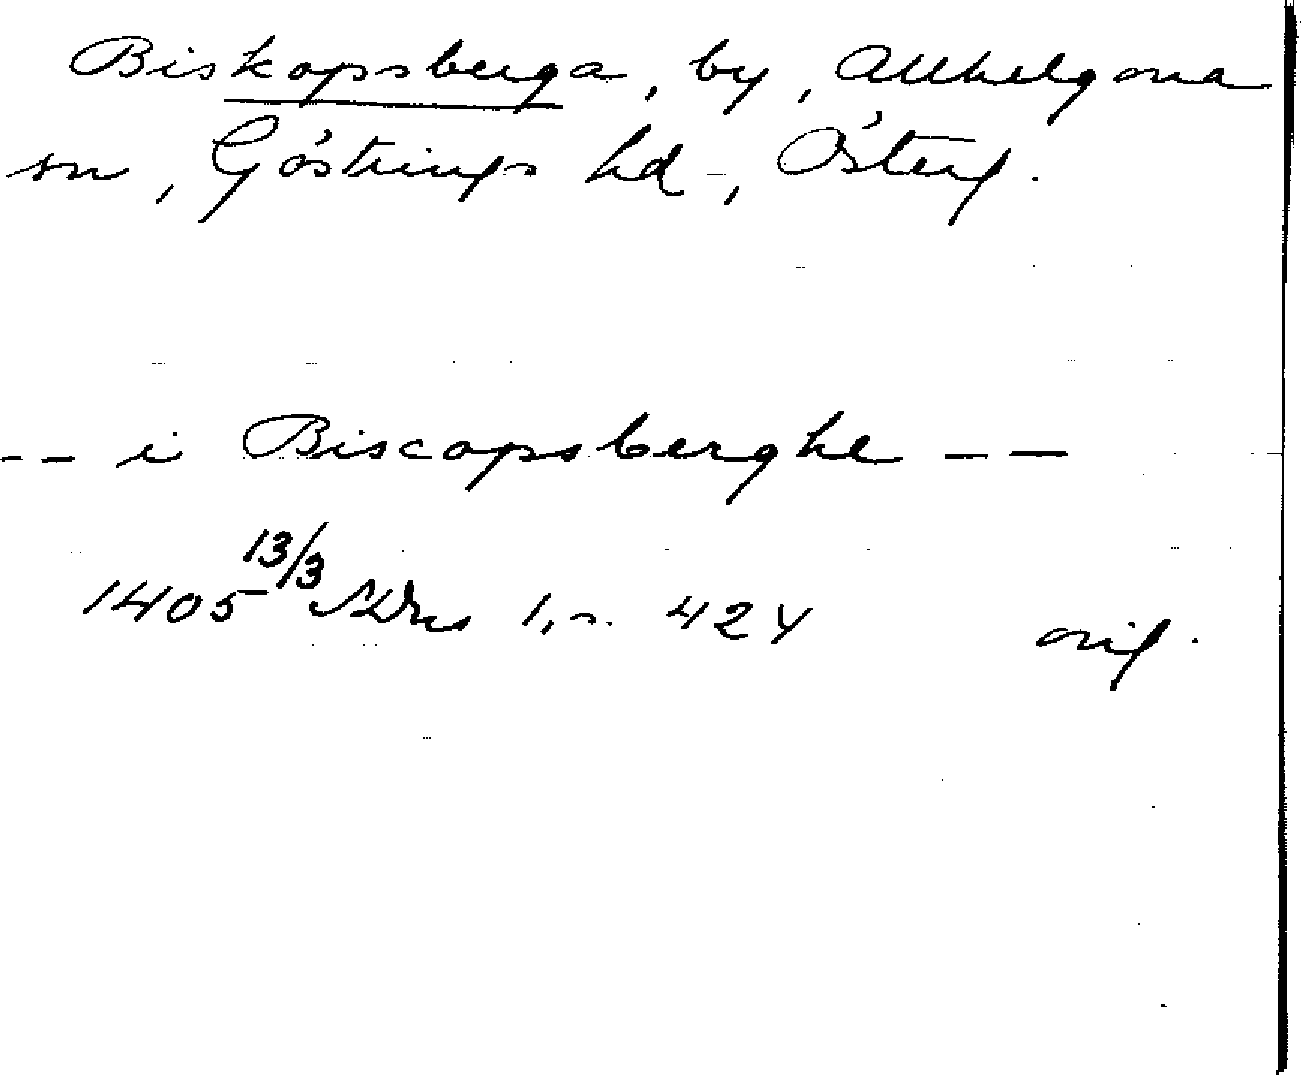 Biskopsberga, by, Allhelgona
sn, Göstrings hd, Österg.
-- i Biscopsberghe --
1405 13/3 SDns 1, n. 424 orig.